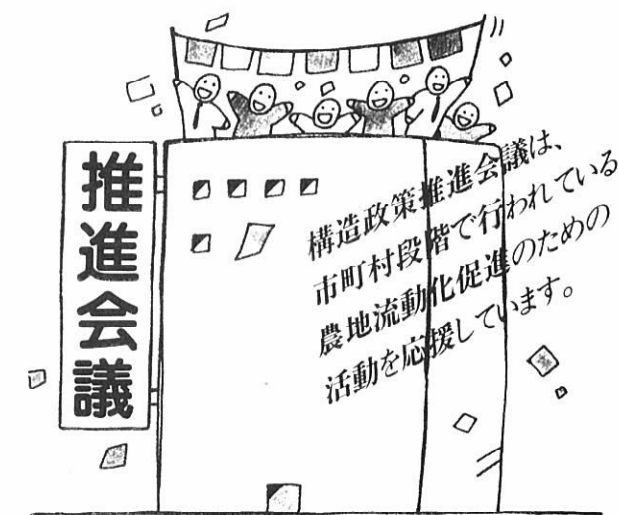 推進会議
構造政策推進会議は、
市町村段階で行われている
農地流動化促進のための
活動を応援しています。